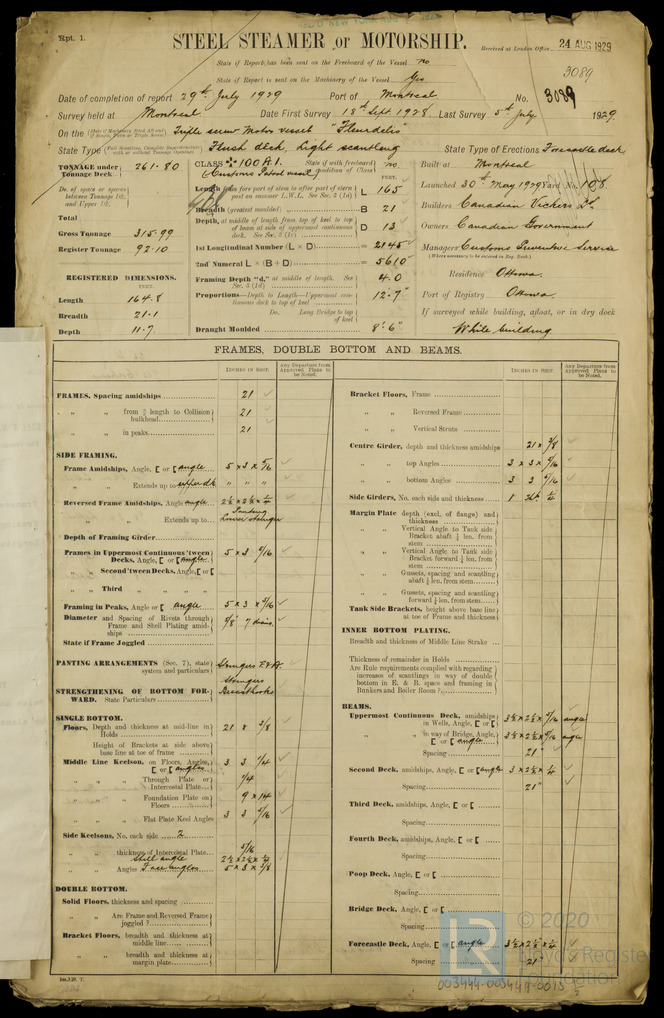 Rpt. 1.
STEEL STEAMER or MOTORSHIP.
Received at London Office 24 AUG 1929
State if Report has been sent on the Freeboard of the Vessel no
State if Report is sent on the Machinery of the Vessel Yes
3089
Date of completion of report 29th July 1929 Port of Montreal No. 3089
Survey held at Montreal Date First Survey 18th Sept 1928 Last Survey 5th July 1929
On the Triple screw Motor vessel "Fleurdelis"
State Type Flush deck, Light scantling State Type of Erections Forecastle deck
TONNAGE under Tonnage Deck 261.80
CLASS 100A1. State if with freeboard condition of Class no
(Customs Patrol vessel)
Built at Montreal
Do. of space or spaces between Tonnage Dk. and Upper Dk.
Total
Gross Tonnage 315.99
Register Tonnage 92.10
FEET.
Length from fore part of stem to after part of stern post on summer L.W.L. See Sec. 3 (1a) L 165
Breadth (greatest moulded) B 21
Depth, at middle of length from top of keel to top of beam at side of uppermost continuous deck. See Sec. 3 (1c) D 13
1st Longitudinal Number (L × D) = 2145
2nd Numeral L × (B + D) = 5610
Framing Depth "d," at middle of length. See Sec. 3 (1d) 4.0
Proportions—Depth to Length—Uppermost continuous deck to top of keel 12.7
Do. Long Bridge to top of keel
Draught Moulded 8'.6"
Launched 30th May 1929 Yard No. 108
Builders Canadian Vickers Ld.
Owners Canadian Government
Managers Customs Preventive Service
(Where necessary to be entered in Reg. Book)
Residence Ottawa.
Port of Registry Ottawa.
If surveyed while building, afloat, or in dry dock
While building
REGISTERED DIMENSIONS.
FEET.
Length 164.8
Breadth 21.1
Depth 11.7
FRAMES, DOUBLE BOTTOM AND BEAMS.
INCHES IN SHIP.
Any Departure from Approved Plans to be Noted.
FRAMES, Spacing amidships 21
" " from 3/5 length to Collision bulkhead 21
" " in peaks 21
SIDE FRAMING.
Frame Amidships, Angle, [ or [ angle 5 × 3 × 5/16
" " Extends up to upper dk " " "
Reversed Frame Amidships, Angle angle 2½ × 2½ × ¼
" " Extends up to Lower stringer
Depth of Framing Girder
Frames in Uppermost Continuous 'tween Decks, Angle, [ or [ angle 5 × 3 5/16
" " Second 'tween Decks, Angle, [ or [
" " Third " "
Framing in Peaks, Angle or [ angle 5 × 3 × 5/16
Diameter and Spacing of Rivets through Frame and Shell Plating amidships 5/8" 7 diams.
State if Frame Joggled
PANTING ARRANGEMENTS (Sec. 7), state system and particulars Stringers F & A.
STRENGTHENING OF BOTTOM FORWARD. State Particulars Stringers Breasthooks
SINGLE BOTTOM.
Floors, Depth and thickness at mid-line in Holds 21 × 3/8
Height of Brackets at side above base line at toe of frame
Middle Line Keelson, on Floors, Angles, [ or [ angles 3 3 ¼
" " Through Plate or Intercostal Plate ¼
" " Foundation Plate on Floors 9 × ¼
" " Flat Plate Keel Angles 3 3 5/16
Side Keelsons, No. each side 2
" " thickness of Intercostal Plate 5/16
Shell angle 2½ × 2½ × ¼
" " Angles Face angles 5 × 3 × 3/8
DOUBLE BOTTOM.
Solid Floors, thickness and spacing
" " Are Frame and Reversed Frame joggled?
Bracket Floors, breadth and thickness at middle line
" " breadth and thickness at margin plate
Bracket Floors, Frame
" " Reversed Frame
" " Vertical Struts
Centre Girder, depth and thickness amidships 21 × 3/8
" " top Angles 3 × 3 × 5/16
" " bottom Angles 3 3 5/16
Side Girders, No. each side and thickness 1 ¼
Margin Plate depth (excl. of flange) and thickness
" " Vertical Angle to Tank side Bracket abaft ¼ len. from stem
" " Vertical Angle to Tank side Bracket forward ¼ len. from stem
" " Gussets, spacing and scantling abaft ¼ len. from stem
" " Gussets, spacing and scantling forward ¼ len. from stem
Tank Side Brackets, height above base line at toe of Frame and thickness
INNER BOTTOM PLATING.
Breadth and thickness of Middle Line Strake
Thickness of remainder in Holds
Are Rule requirements complied with regarding increase of scantlings in way of double bottom in E. & B. space and framing in Bunkers and Boiler Room?
BEAMS.
Uppermost Continuous Deck, amidships in Wells, Angle, [ or [ 3½ × 2½ × 5/16 angle
" " in way of Bridge, Angle, [ or [ angle 3½ × 2½ × 5/16 angle
Spacing 21"
Second Deck, amidships, Angle, [ or [ angle 3 × 2½ × ¼
Spacing 21"
Third Deck, amidships, Angle, [ or [
Spacing
Fourth Deck, amidships, Angle, [ or [
Spacing
Poop Deck, Angle, [ or [
Spacing
Bridge Deck, Angle, [ or [
Spacing
Forecastle Deck, Angle, [ or [ angle 3½ × 2½ × ¼
Spacing 21"
LR
© 2020
Lloyd's Register
Foundation
003444-003449-0015